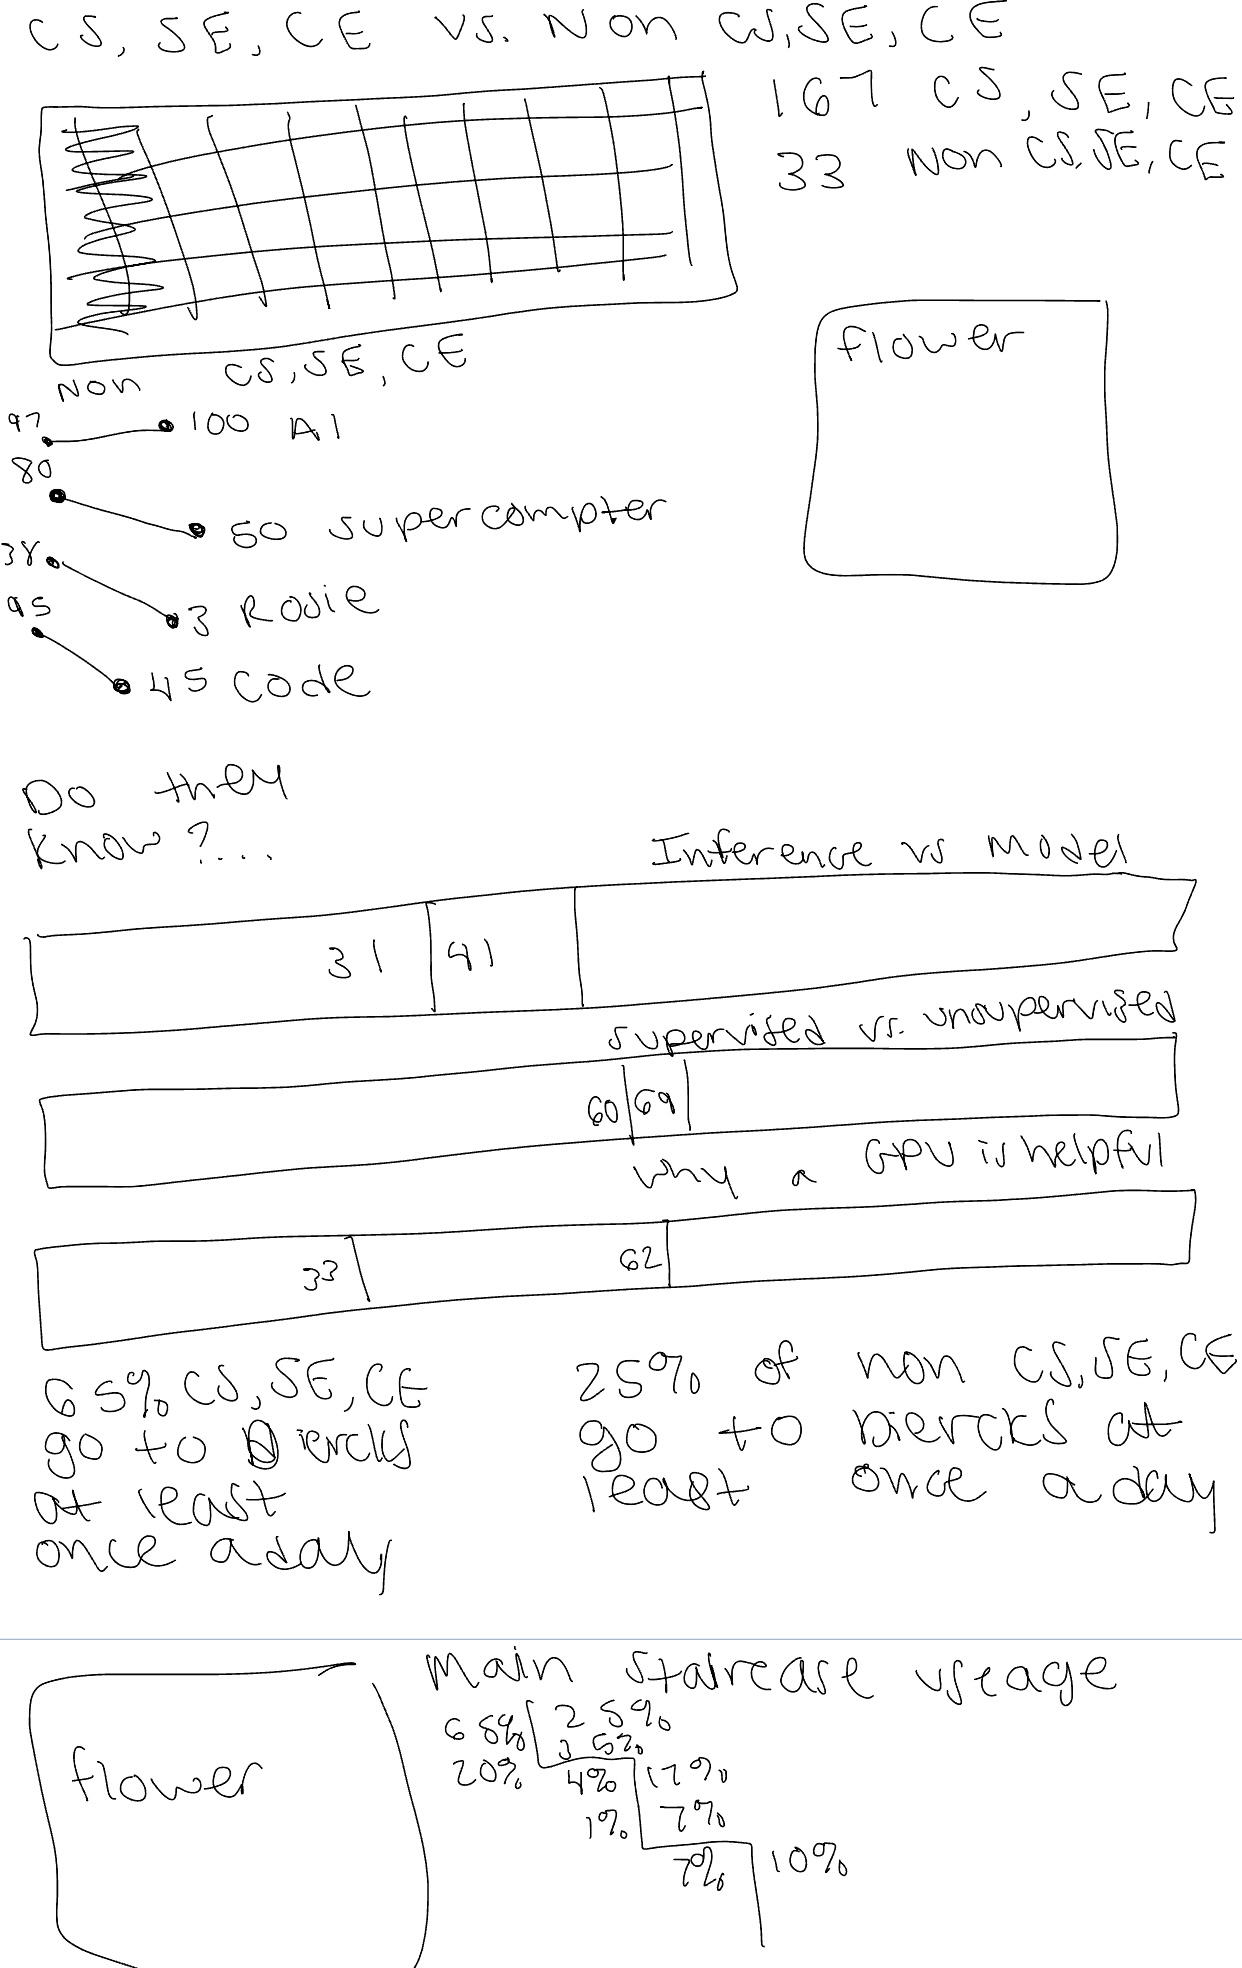 CS, SE, CE vs. Non CS, SE, CE
167 CS, SE, CE
33 Non CS, SE, CE
Non CS, SE, CE
flower
97 100 AI
80 50 supercompter
38 3 Rosie
95 45 Code
Do they
Know?...
Inference vs Model
31 41
supervised vs. unsupervised
60 69
why a GPU is helpful
33 62
65% CS, SE, CE
go to Diercks
at least
once a day
25% of non CS, SE, CE
go to Diercks at
least once a day
flower
Main staircase useage
65% 25%
35%
20% 4% 17%
1% 7%
7% 10%